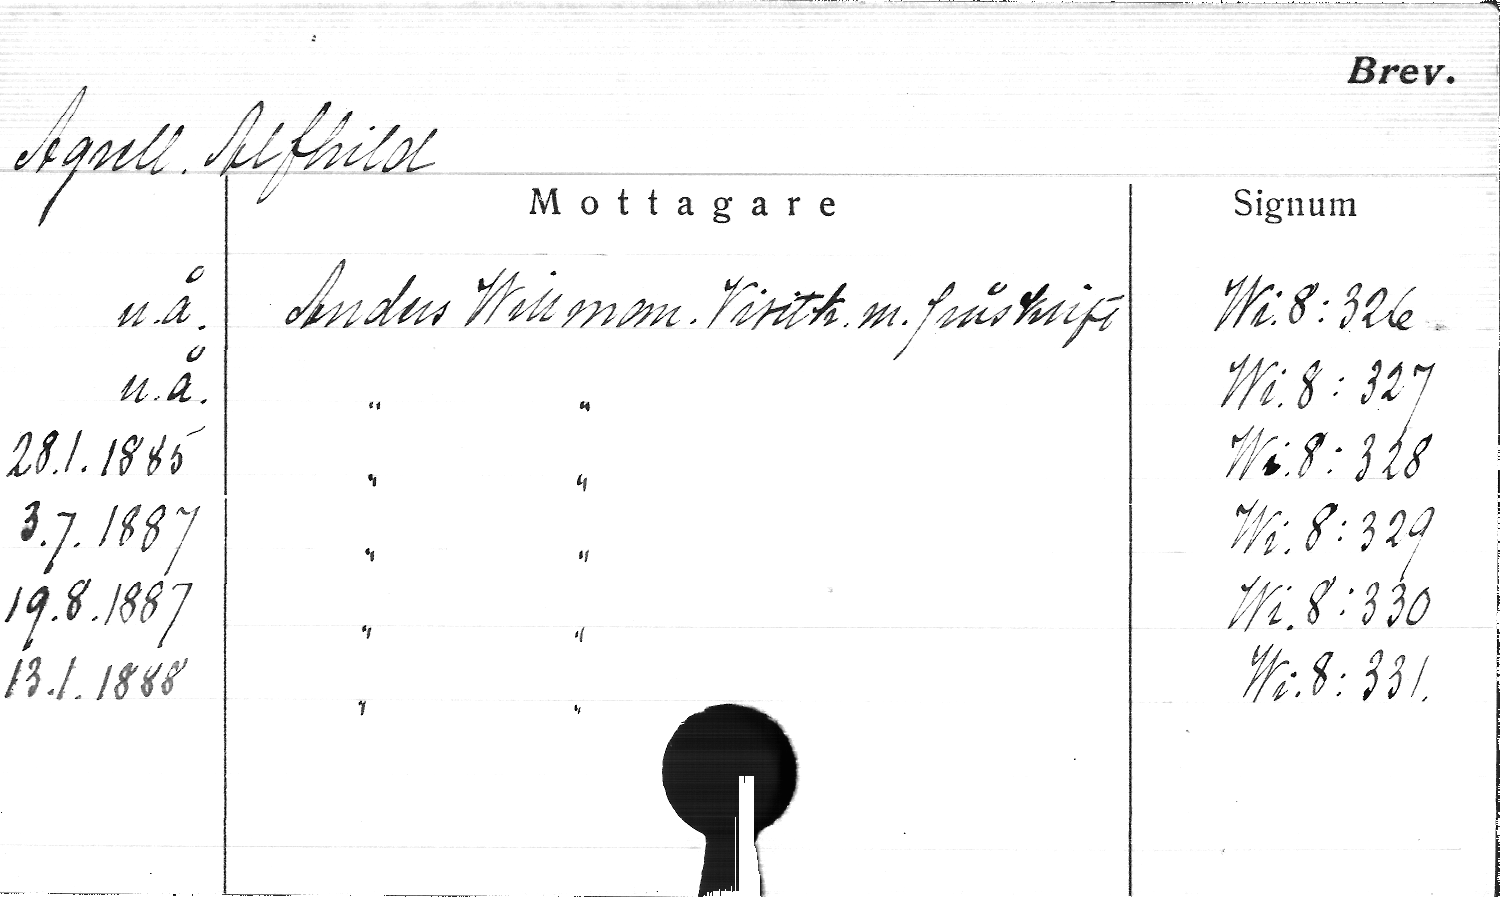 Brev.
Agrell. Alfhild
Mottagare Signum
u.å. Anders Willman. Visitk. m. påskrift Wi. 8: 326
u.å. " " Wi. 8: 327
28.1.1885 " " Wi. 8: 328
3.7.1887 " " Wi. 8: 329
19.8.1887 " " Wi. 8: 330
13.1.1888 " " Wi. 8: 331.